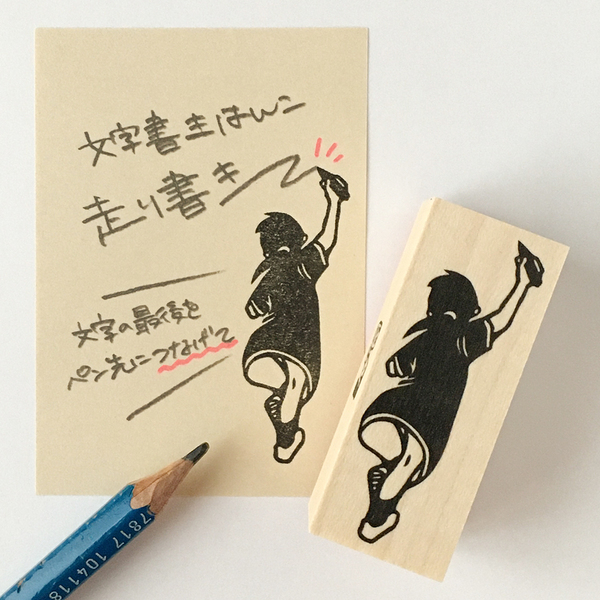 文字書きはんこ
走り書き
文字の最後を
ペン先につなげて
7817 104118